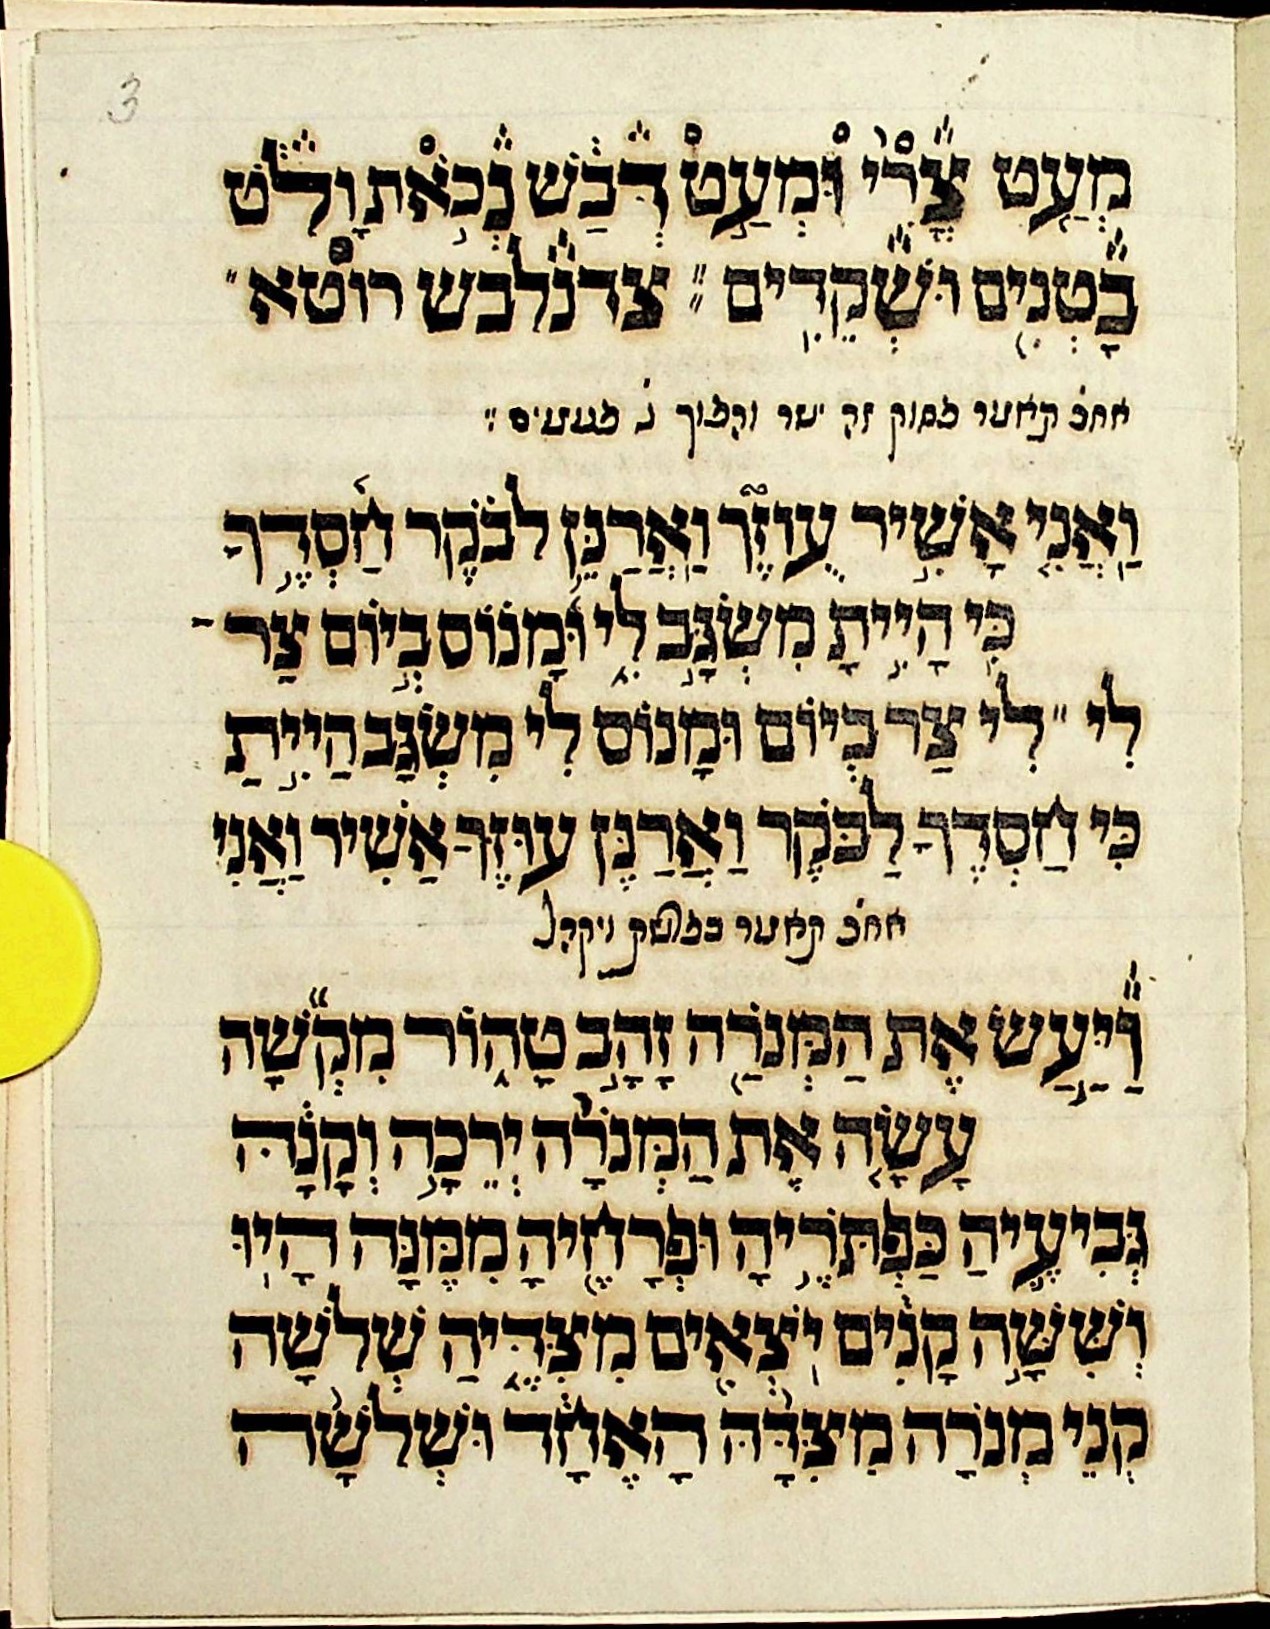 3
מְעַט צֳרִי וּמְעַט דְּבַשׁ נְכֹאת וָלֹט
בָּטְנִים וּשְׁקֵדִים ״ צדנלבש רוטא ״
ואח״כ קאער פסוק זה ישר
וַאֲנִי אָשִׁיר עֻוזֶּךָ וַאֲרַנֵּן לבֹּקֶר חַסְדֶּךָ
כִּי הָיִיתָ מִשְׂגָּב לִי וּמָנוֹס בְּיוֹם צַר
לִי ״ לִי צַר בְּיוֹם וּמָנוֹס לִי מִשְׂגָּב הַיִיתַ
כִּי חַסְדֶךָ לַבֹּקֶר וַאֲרַנֶּן עוּזֶּךָ אַשִׁיר וַאֲנִי
אח״כ קאער
וַיַּעַשׂ אֶת הַמְּנֹרַה זָהָב טָהוֹר מִקְשָׁה
עָשָׂה אֶת הַמְּנֹרָה יְרֵכָהּ וְקָנָהּ
גְּבִיעֶיהַ כַּפְתֹּרֶיהָ וּפְרָחֶיהָ מִמֶּנָּה הָיוּ
וְשִׁשָּׁה קָנִים יֹצְאִים מִצִּדֶּיהַ שְׁלֹשָׁה
קְנֵי מְנֹרָה מִצִּדָּהּ הָאֶחָד וּשְׁלשָׁה